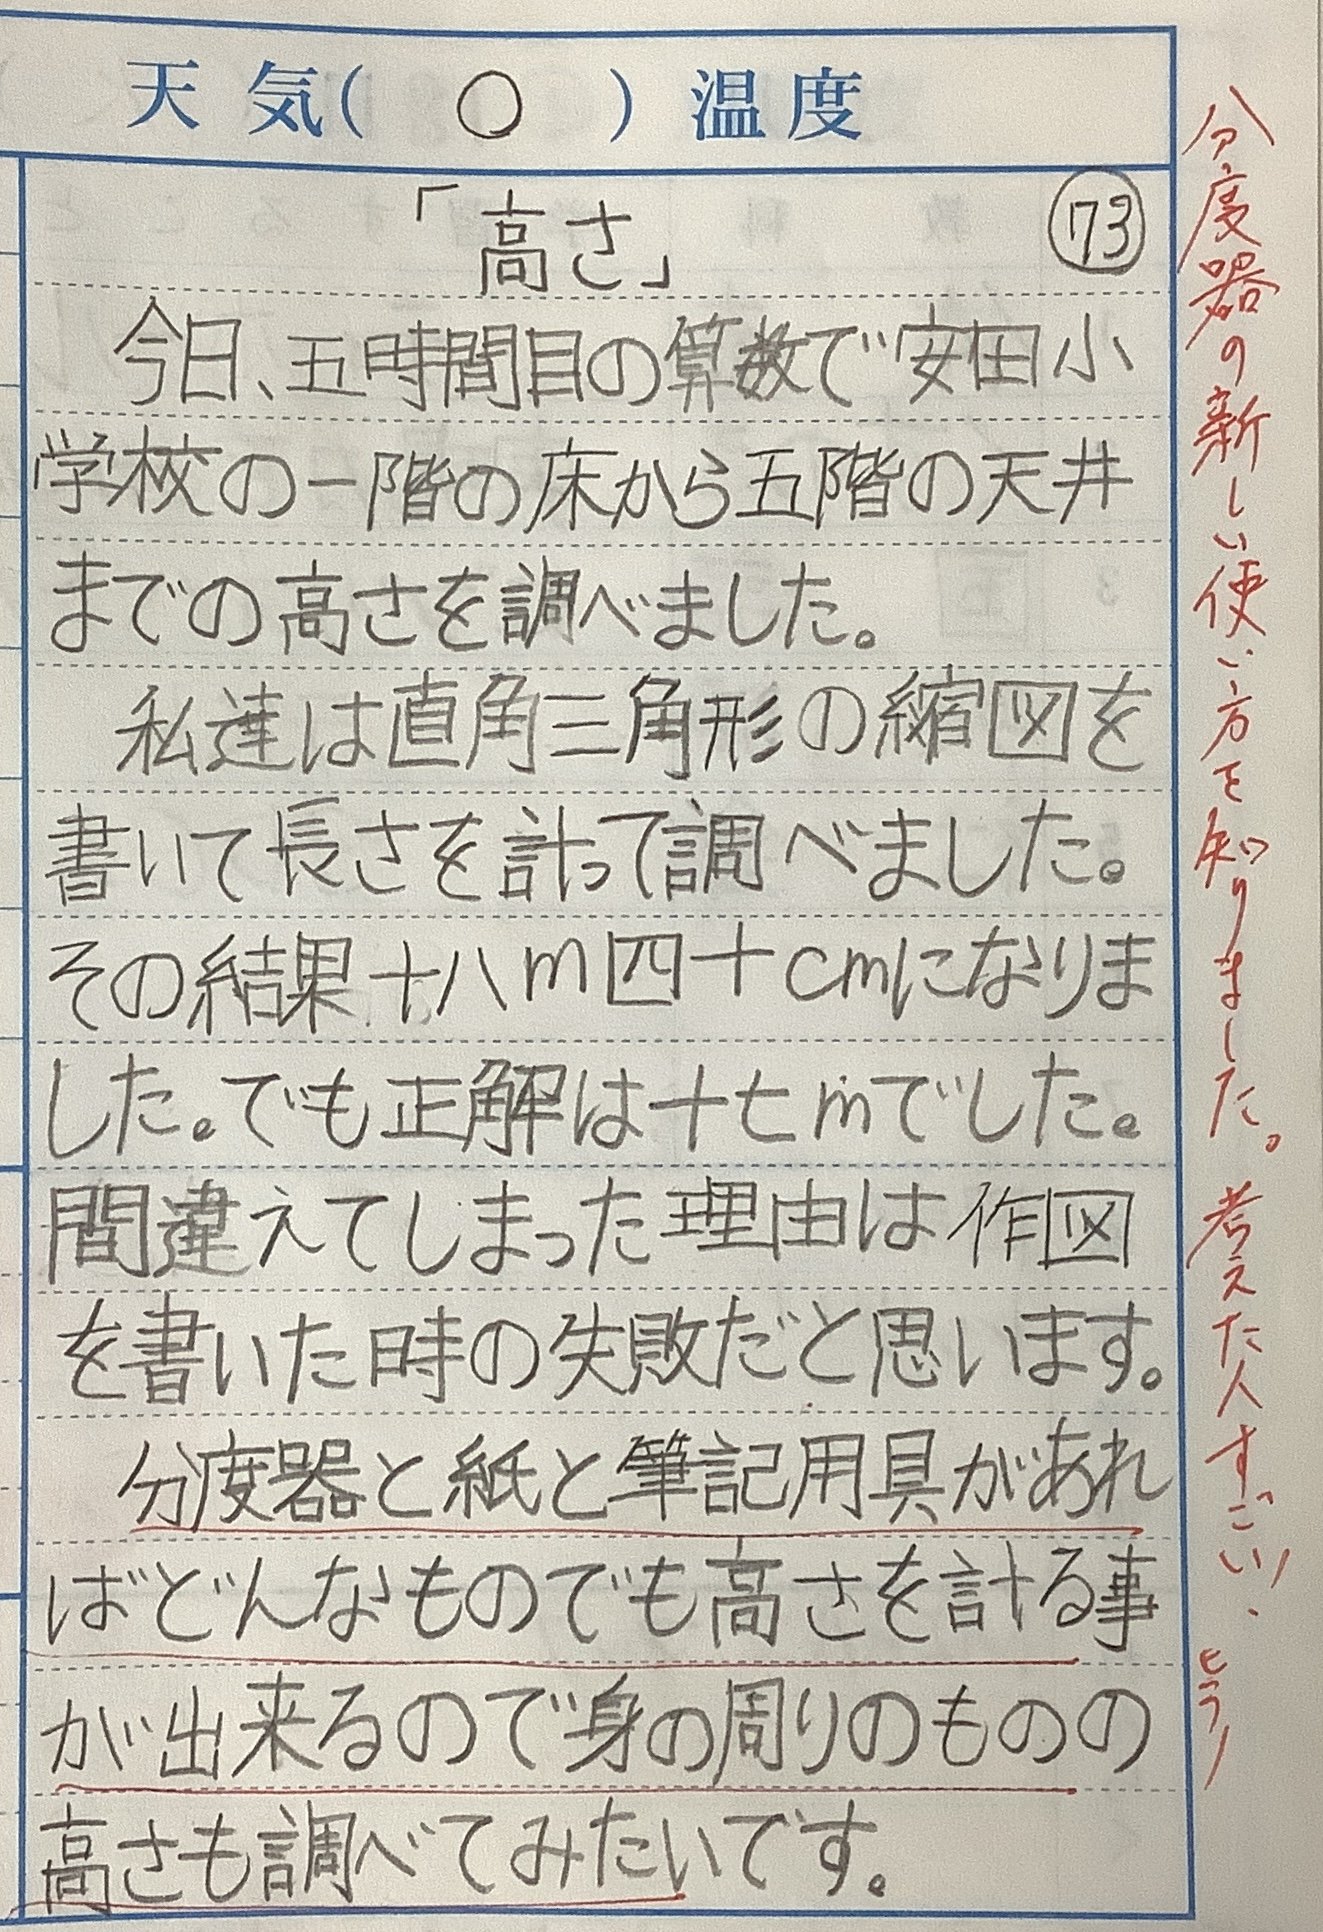 天気( ○ ) 温度
「高さ」 73
今日、五時間目の算数で安田小
学校の一階の床から五階の天井
までの高さを調べました。
私達は直角三角形の縮図を
書いて長さを計って調べました。
その結果十八m四十cmになりま
した。でも正解は十七mでした。
間違えてしまった理由は作図
を書いた時の失敗だと思います。
分度器と紙と筆記用具があれ
ばどんなものでも高さを計る事
が出来るので身の周りのものの
高さも調べてみたいです。
分度器の新しい使い方を知りました。考えた人すごい!